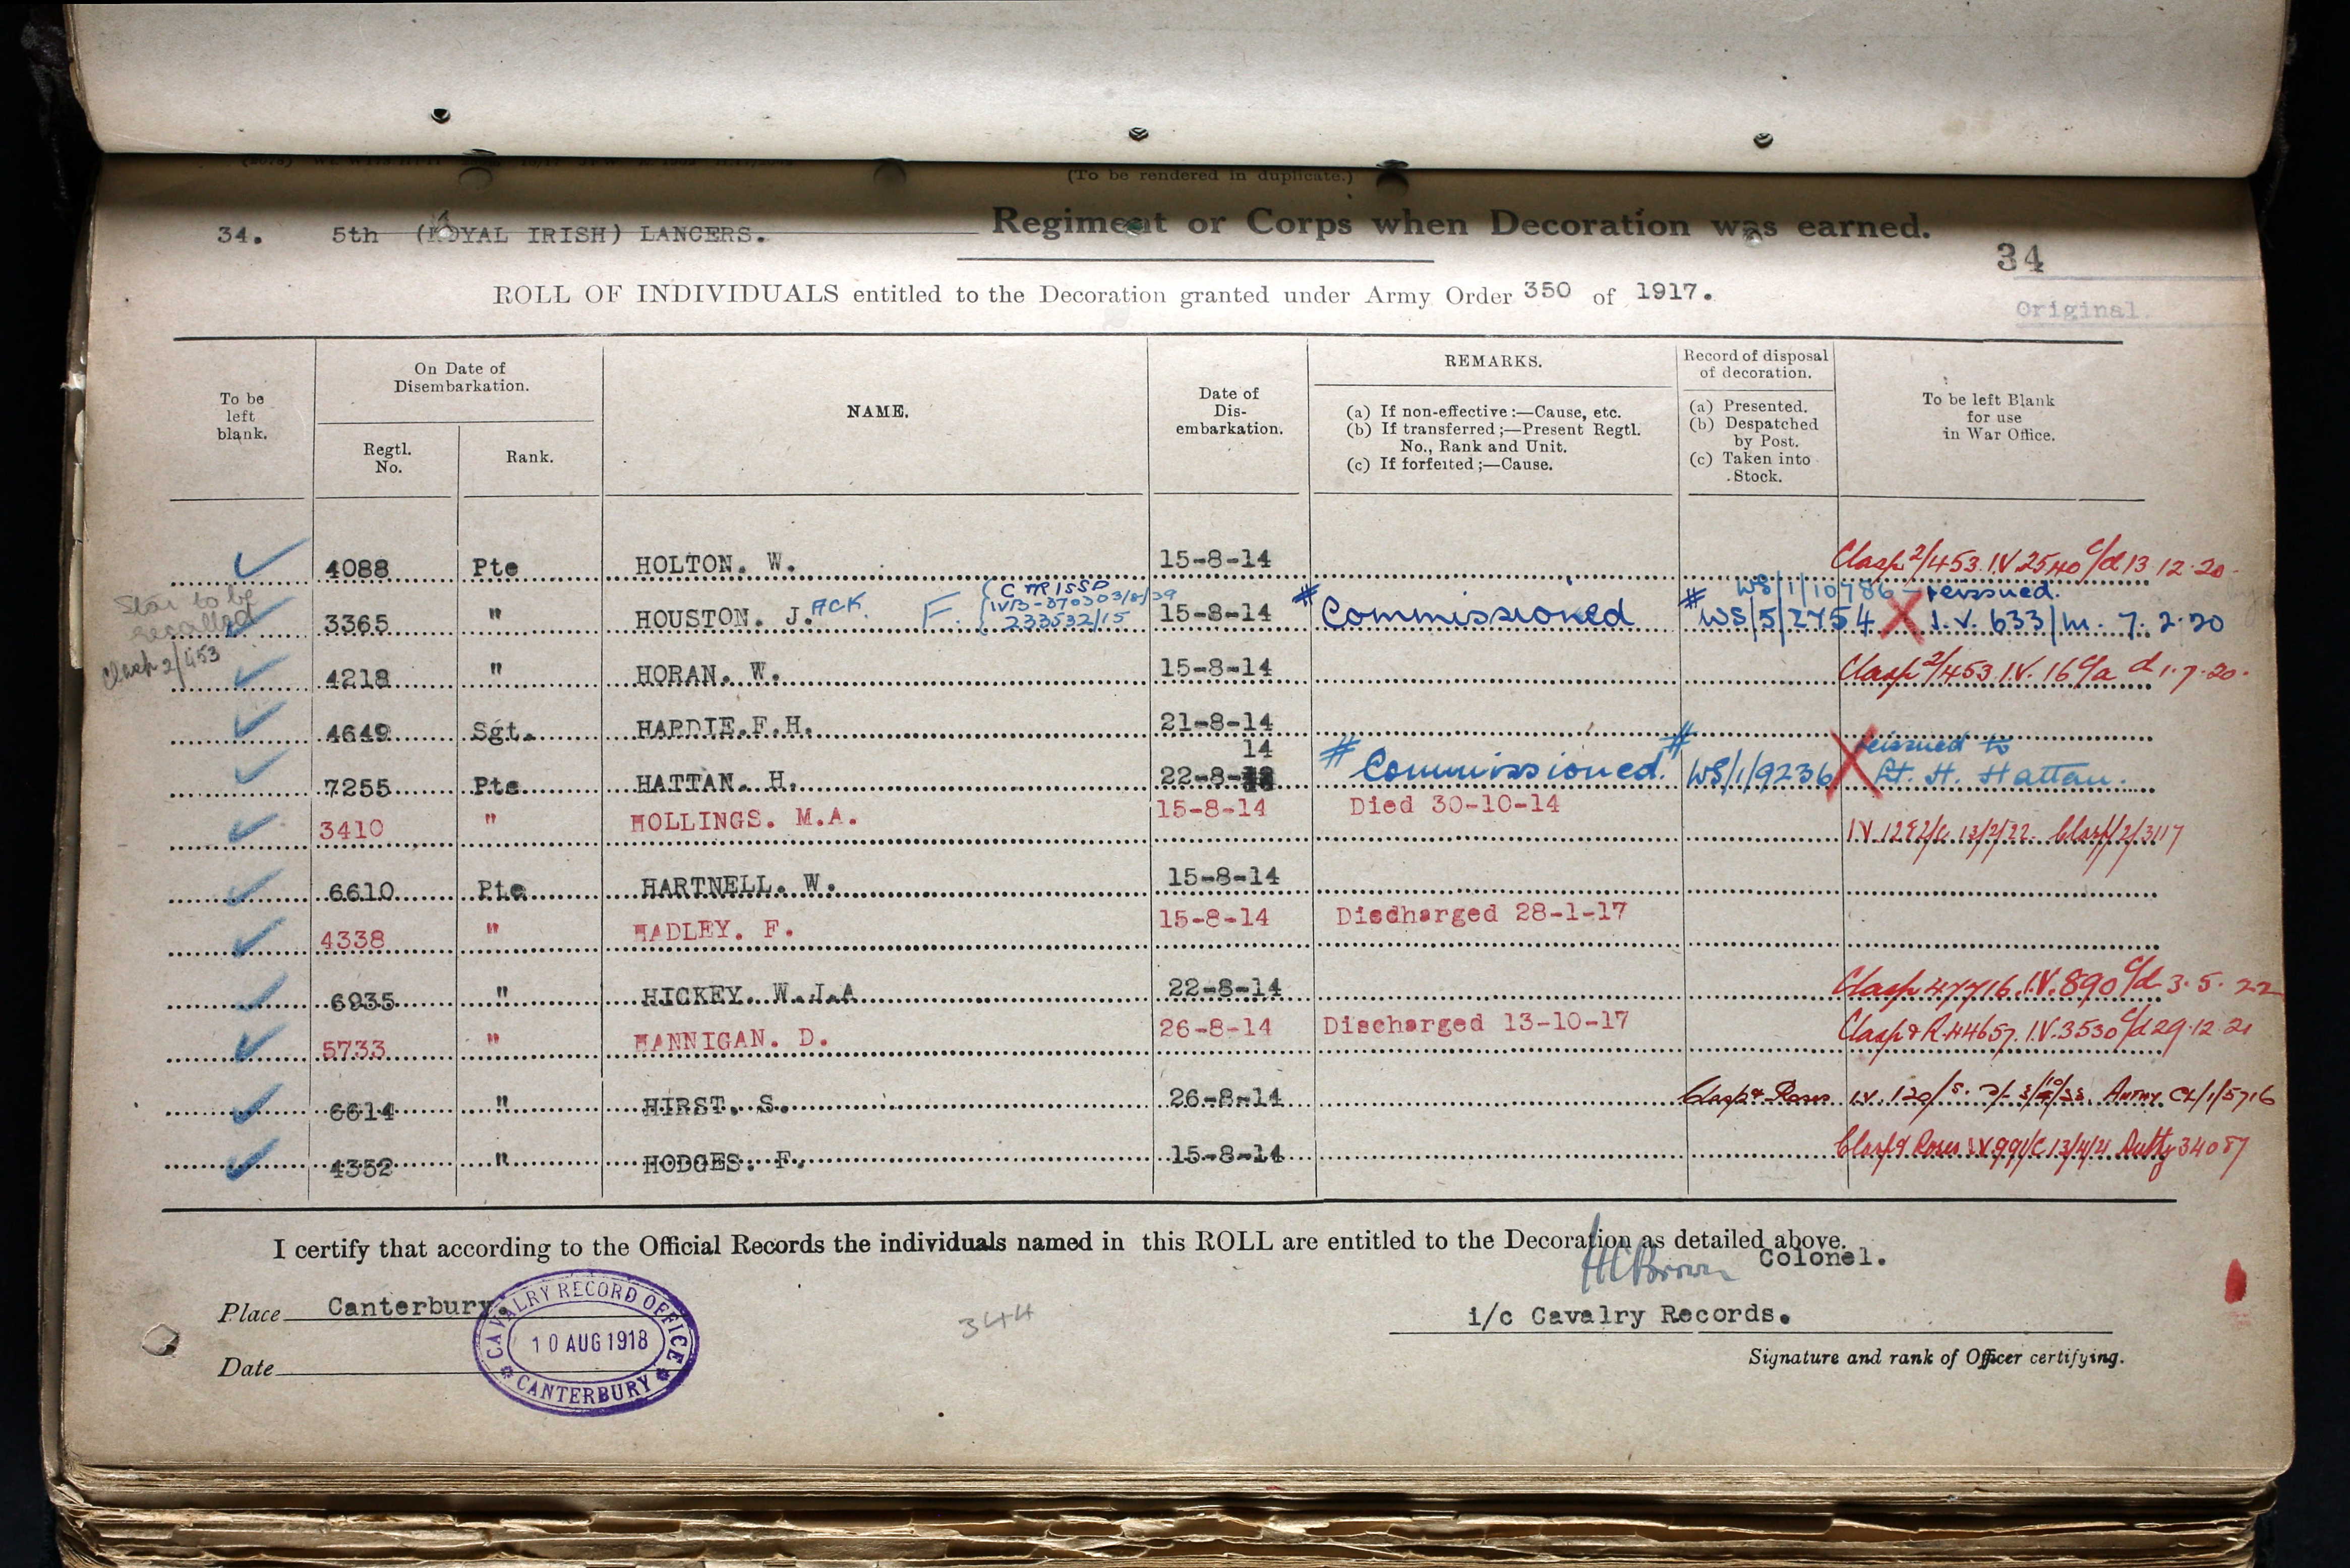 (To be rendered in duplicate.)
34. 5th (ROYAL IRISH) LANCERS. Regiment or Corps when Decoration was earned.
34
ROLL OF INDIVIDUALS entitled to the Decoration granted under Army Order 350 of 1917.
Original.
To be left blank.
On Date of Disembarkation.
Regtl. No.
Rank.
NAME.
Date of Dis-embarkation.
REMARKS.
(a) If non-effective:—Cause, etc.
(b) If transferred;—Present Regtl. No., Rank and Unit.
(c) If forfeited;—Cause.
Record of disposal of decoration.
(a) Presented.
(b) Despatched by Post.
(c) Taken into Stock.
To be left Blank for use in War Office.
4088 Pte HOLTON. W. 15-8-14 Clasp 2/453 IV 2540 c/d 13.12.20.
Star to be recalled
{ C TR ISSD
IV/3-3703 03/8/39
233532/15
WS/1/10786 - reissued.
3365 " HOUSTON. J.ACK. F. 15-8-14 # Commissioned # WS/5/2754 X I.V. 633/M. 7.2.20
Clasp 2/453
4218 " HORAN. W. 15-8-14 Clasp 2/453 I.V. 16 d 1.7.20.
4649 Sgt. HARDIE.F.H. 21-8-14
14
7255 Pte HATTAN. H. 22-8- # Commissioned. # WS/1/9236 X reissued to Lt. H. Hattan.
3410 " HOLLINGS. M.A. 15-8-14 Died 30-10-14 13/2/22. Clasp/2/3117
6610 Pte HARTNELL. W. 15-8-14
4338 " HADLEY. F. 15-8-14 Disdharged 28-1-17
6935 " HICKEY. W.J.A 22-8-14 Clasp 47716. I.V. 890 c/d 3.5.22
5733 " HANNIGAN. D. 26-8-14 Discharged 13-10-17 Clasp & R. 44657. I.V. 3530 c/d 29.12.21
6614 " HIRST. S. 26-8-14 Clasp & Roses IV. 120/5. CL/1/5716
4352 " HODGES. F. 15-8-14 Clasp & Roses IV 991/C 13/4/21 Authy 34087
I certify that according to the Official Records the individuals named in this ROLL are entitled to the Decoration as detailed above.
HCBrown Colonel.
Place Canterbury.
i/c Cavalry Records.
Signature and rank of Officer certifying.
Date
CAVALRY RECORD OFFICE
10 AUG 1918
CANTERBURY
344